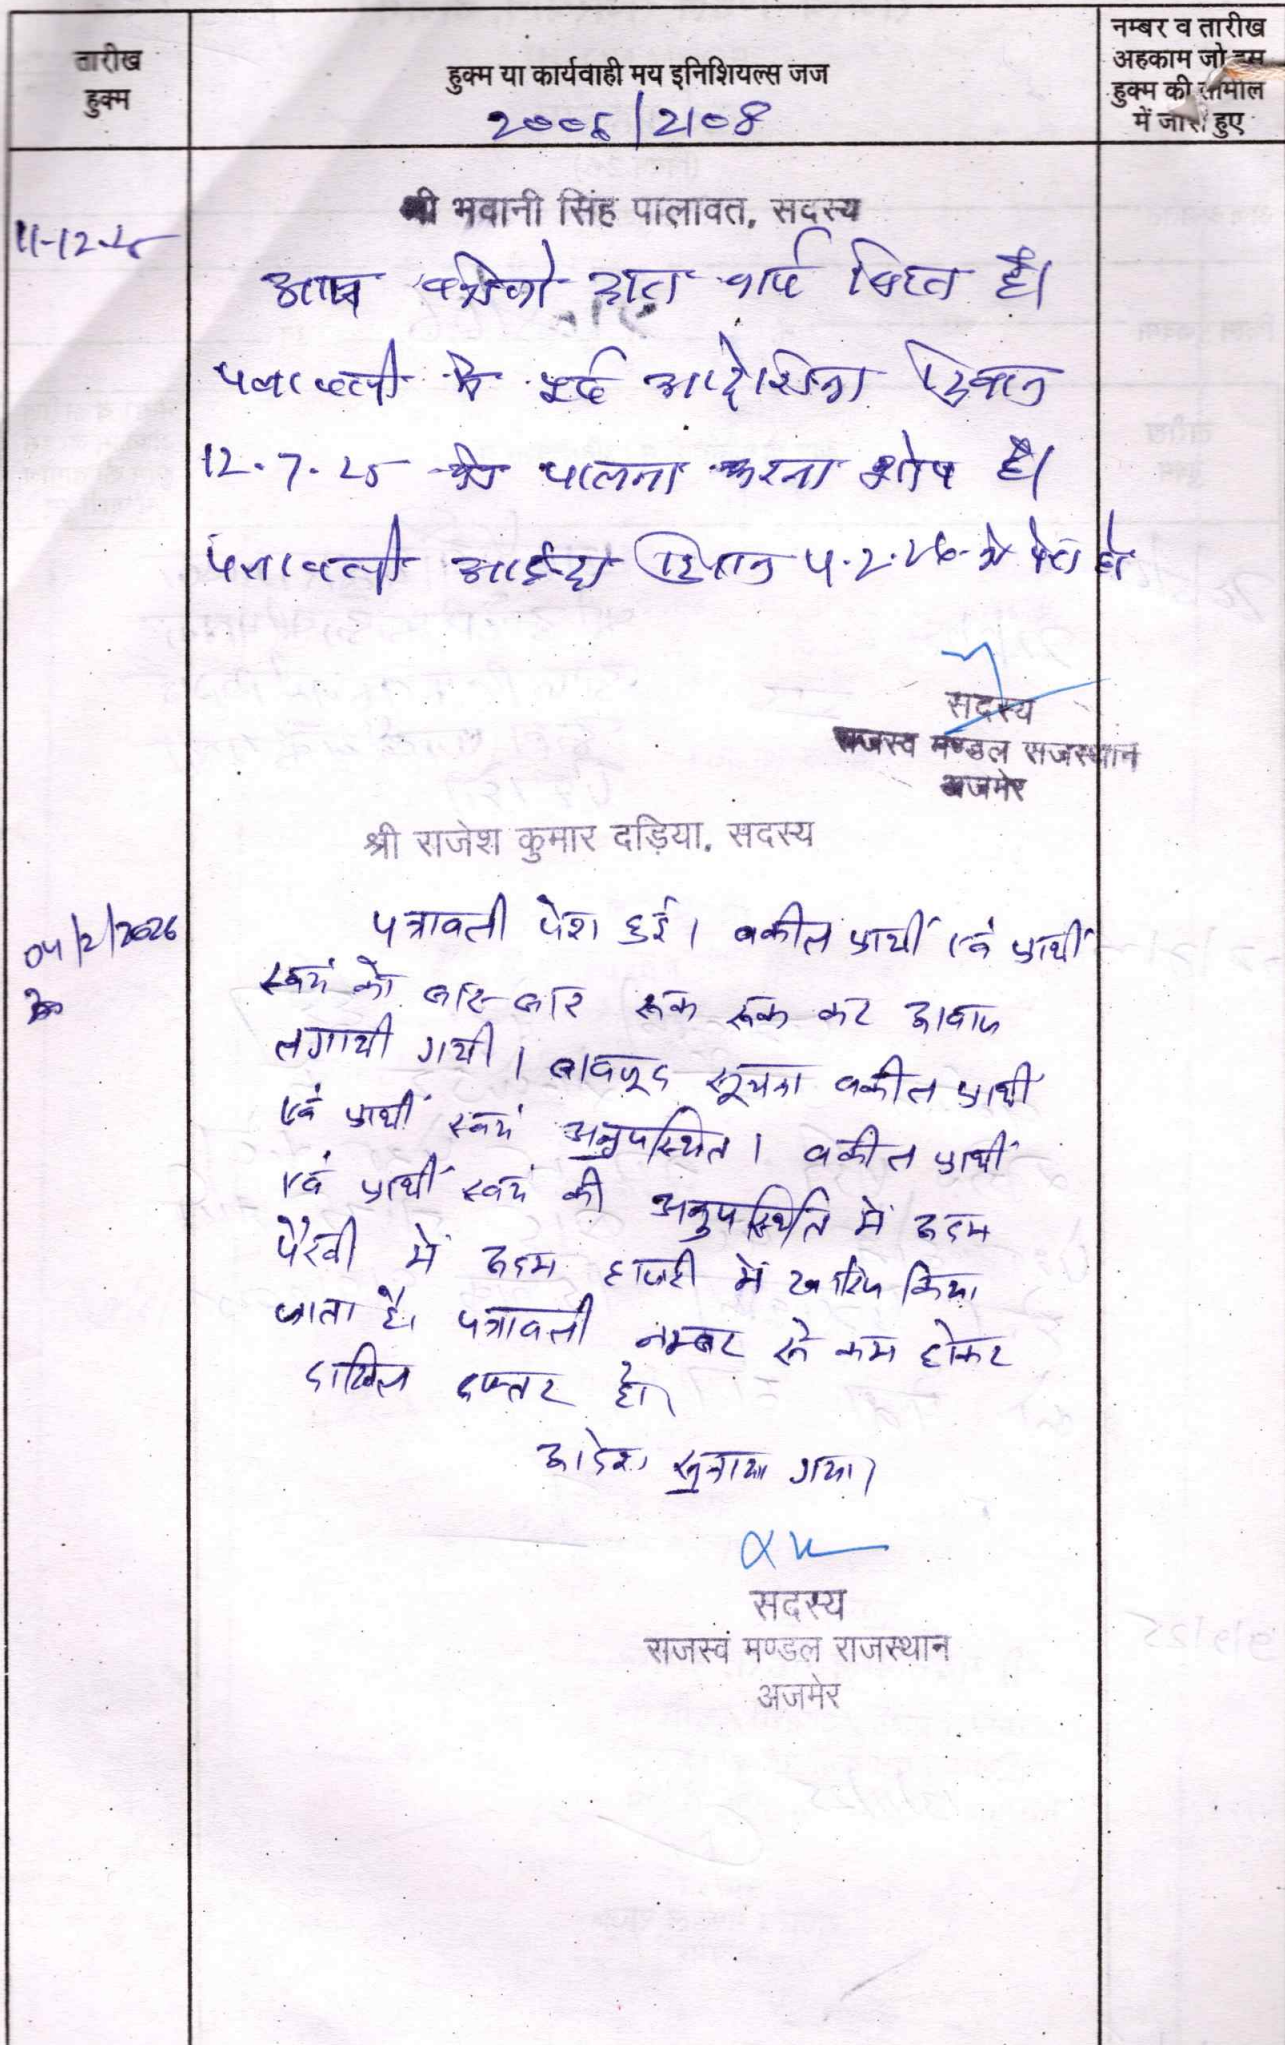 तारीख
हुक्म
हुक्म या कार्यवाही मय इनिशियल्स जज
नम्बर व तारीख
अहकाम जो इस
हुक्म की तामील
में जारी हुए
2008/2108
श्री भवानी सिंह पालावत, सदस्य
11-12-25
आज वकीलो द्वारा कार्य स्थगित है।
पत्रावली के पूर्व आदेशिका दिनांक
12.7.25 की पालना करना शेष है।
पत्रावली आईन्दा दिनांक 4.2.26 को पेश हो
सदस्य
राजस्व मण्डल राजस्थान
अजमेर
श्री राजेश कुमार दड़िया, सदस्य
04/2/2026
पत्रावली पेश हुई। वकील प्रार्थी एवं प्रार्थी
स्वयं को बार-बार रूक रूक कर आवाज
लगायी गयी। बावजूद सूचना वकील प्रार्थी
एवं प्रार्थी स्वयं अनुपस्थित। वकील प्रार्थी
एवं प्रार्थी स्वयं की अनुपस्थिति में अदम
पैरवी में अदम हाजरी में खारिज किया
जाता है। पत्रावली नम्बर से कम होकर
दाखिल दफ्तर हो।
आदेश सुनाया गया।
सदस्य
राजस्व मण्डल राजस्थान
अजमेर